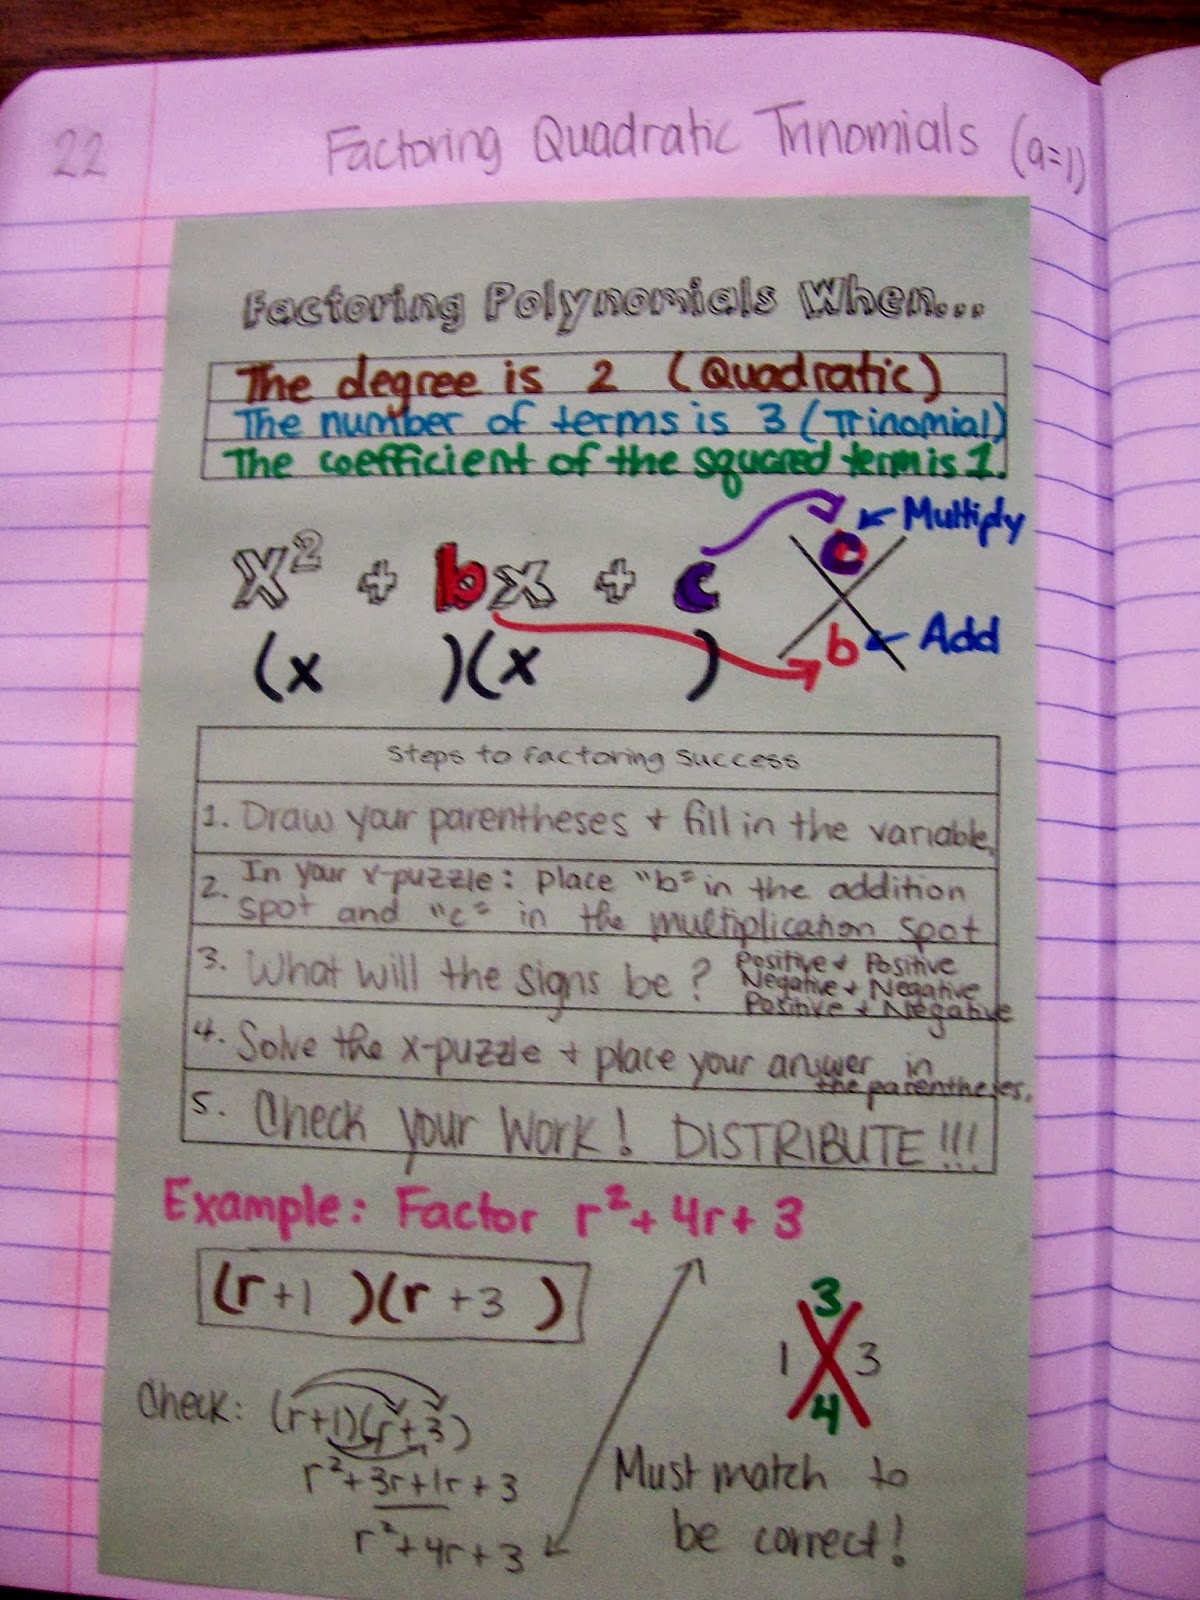 22
Factoring Quadratic Trinomials (a=1)
Factoring Polynomials When...
The degree is 2 (Quadratic)
The number of terms is 3 (Trinomial)
The coefficient of the squared term is 1.
x² + bx + c
(x )(x )
c ← Multiply
b ← Add
Steps to Factoring Success
1. Draw your parentheses + fill in the variable.
2. In your x-puzzle: place "b" in the addition
spot and "c" in the multiplication spot
3. What will the signs be?
Positive + Positive
Negative + Negative
Positive + Negative
4. Solve the x-puzzle + place your answer in
the parentheses.
5. Check your work! DISTRIBUTE!!!
Example: Factor r² + 4r + 3
(r +1 )(r +3 )
3
1 3
4
Check: (r+1)(r+3)
r²+3r+1r+3
r²+4r+3
Must match to
be correct!